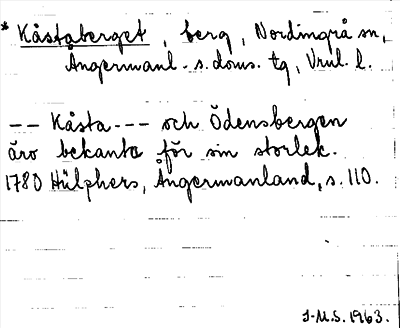 * Kåstaberget, berg, Nordingrå sn,
Ångermanl. s. doms. tg, Vnrl. l.
-- Kåsta --- och Ödensbergen
äro bekanta för sin storlek.
1780 Hülphers, Ångermanland, s. 110.
J-M.S. 1963.